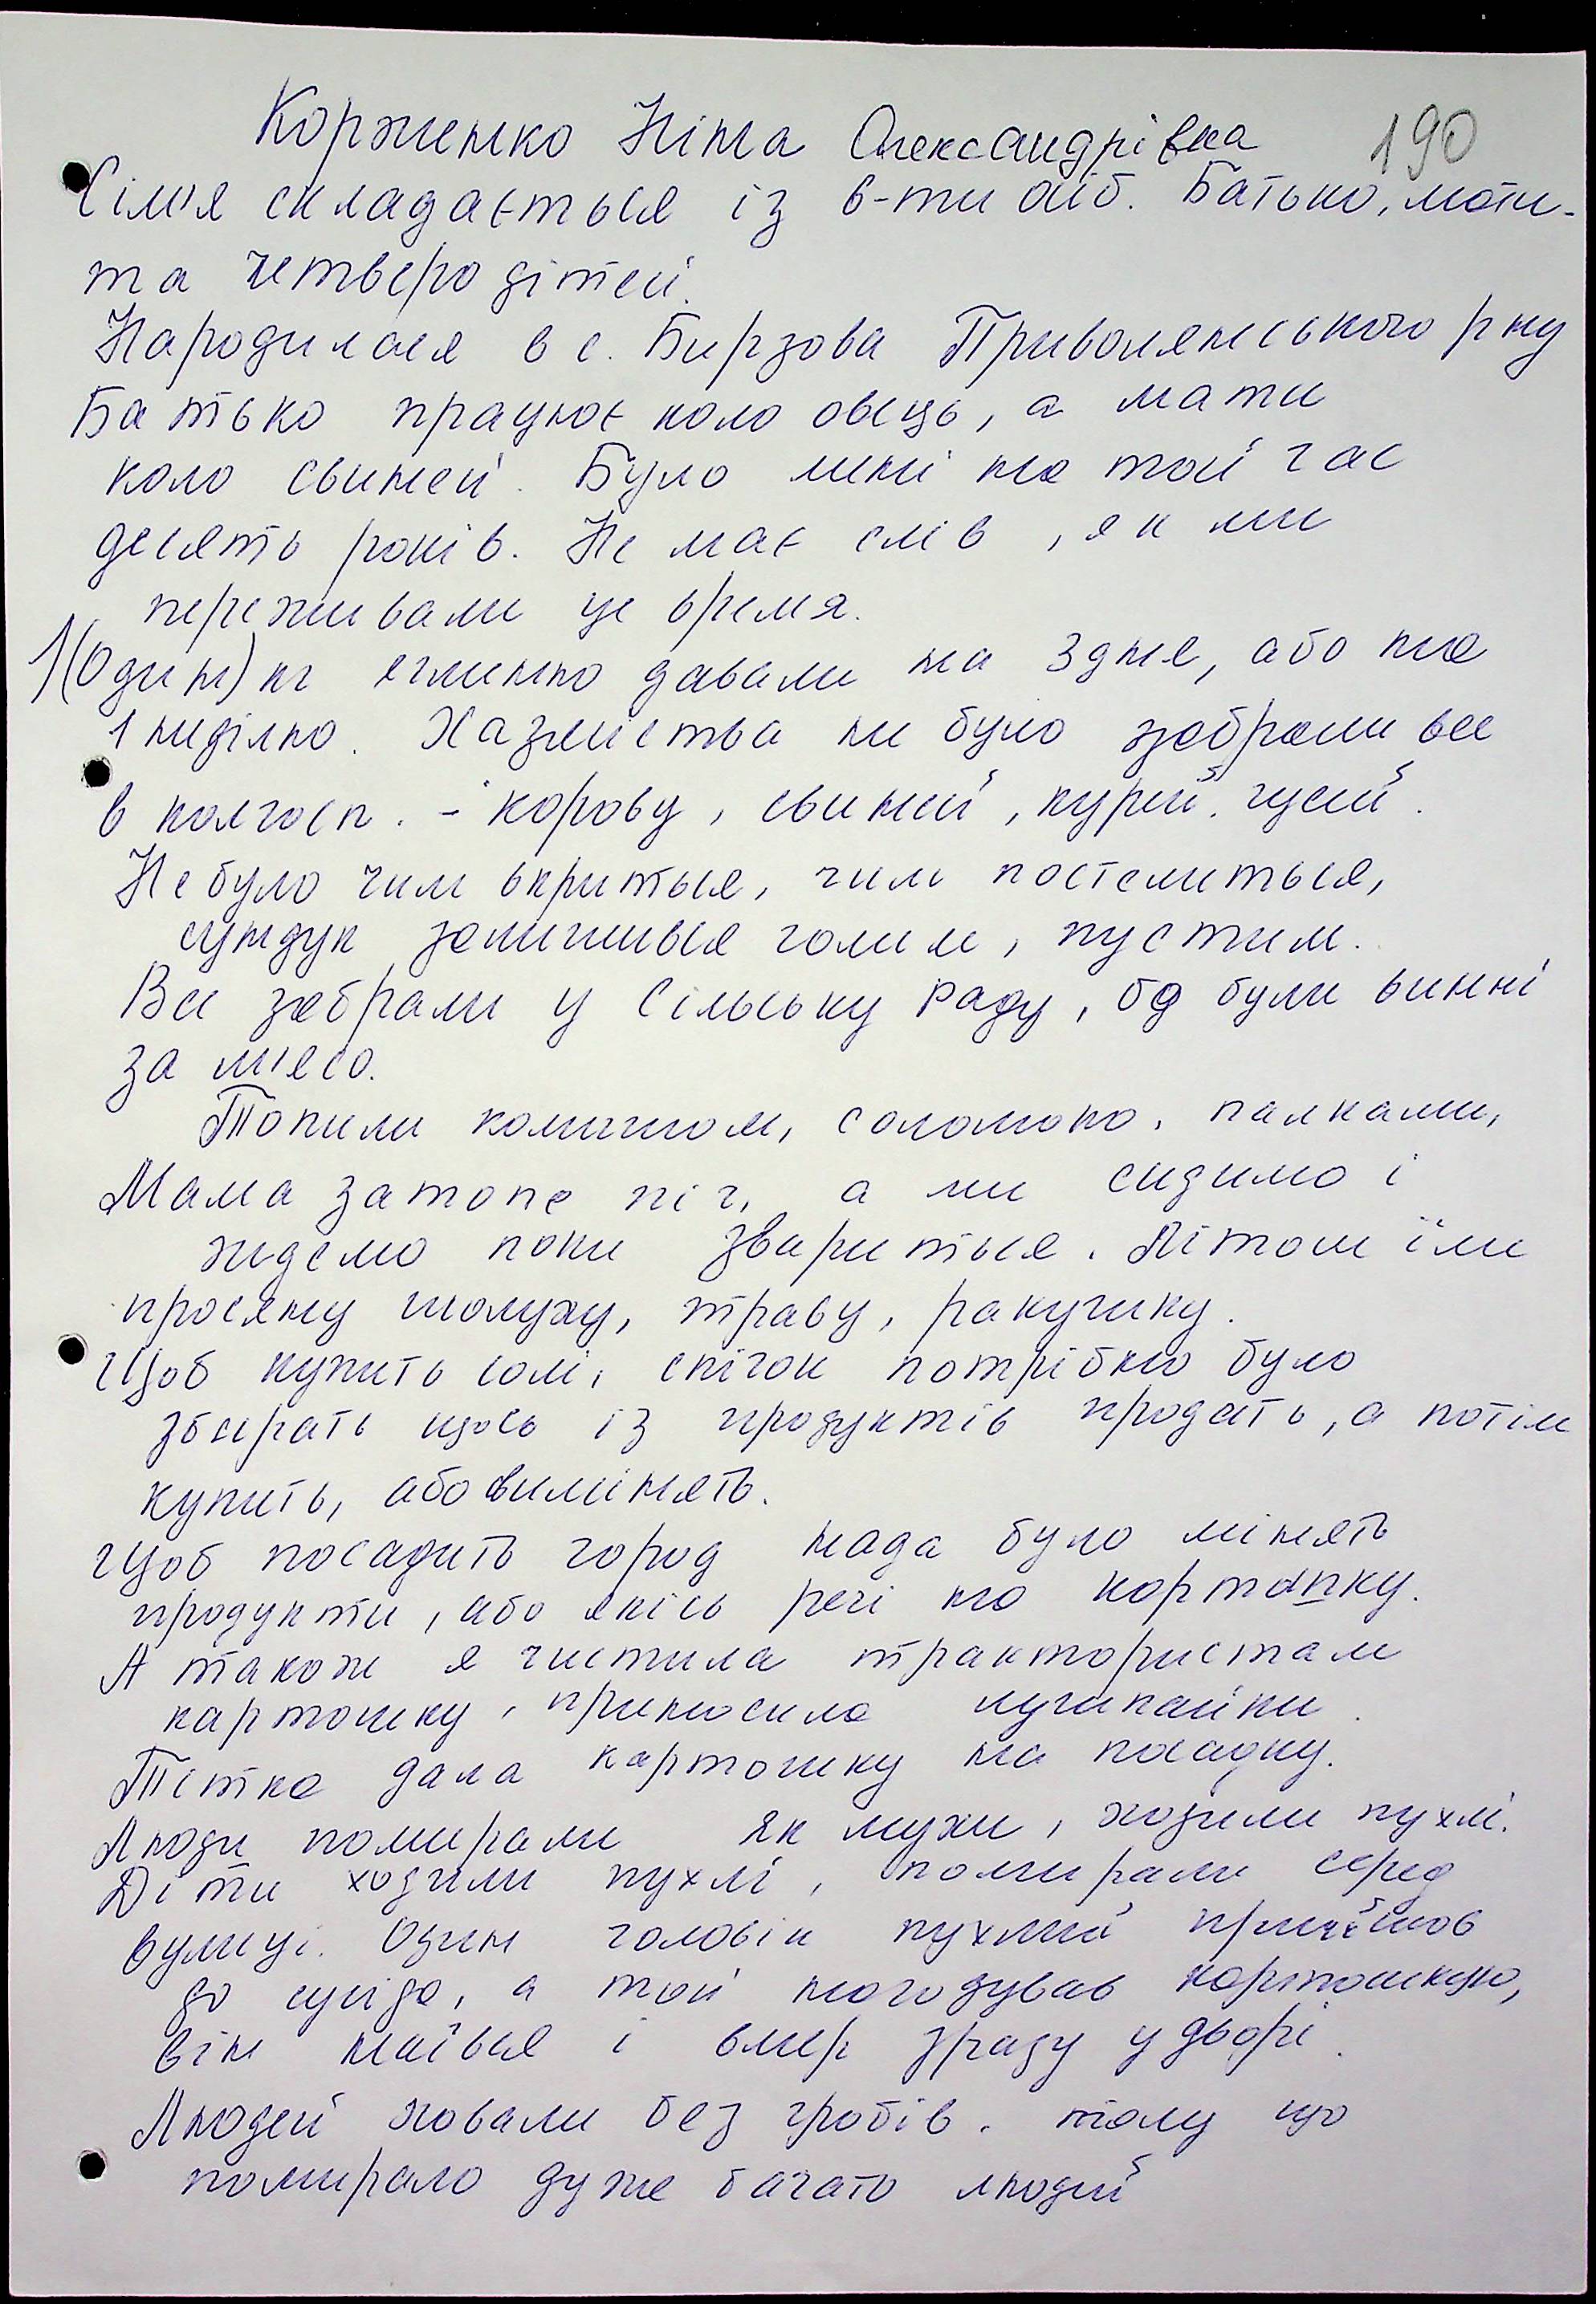 Корженко Ніна Олександрівна 190
Сім'я складається із 6-ти осіб. Батько, мати
та четверо дітей.
Народилася в с. Бирзова Приволянського р ну
Батько працює коло овець, а мати
коло свиней. Було мені на той час
десять років. Не має слів, як ми
переживали це время.
1(Один) кг ячменю давали на 3 дня, або на
1 неділю. Хазяйства не було забрали все
в колгосп. - корову, свиней, курей, гусей.
Не було чим вкриться, чим постелиться,
сундук залишився голим, пустим.
Все забрали у Сільську Раду, бо були винні
за мясо.
Топили комишом, соломою, палками,
Мама затопе піч, а ми сидимо і
ждемо поки звариться. Літом їли
просяну шолуху, траву, ракушку.
Щоб купить солі, спічок потрібно було
збирать щось із продуктів продать, а потім
купить, або вимінять.
Щоб посадить город нада було мінять
продукти, або якісь речі на картопку.
А також я чистила трактористам
картошку, приносила лушпайки.
Тітка дала картошку на посадку.
Люди помирали як мухи, ходили пухлі.
Діти ходили пухлі, помирали серед
вулиці. Один чоловік пухлий прийшов
до сусіда, а той нагодував картошкою,
він наївся і вмер зразу у дворі.
Людей ховали без гробів, тому що
помирало дуже багато людей